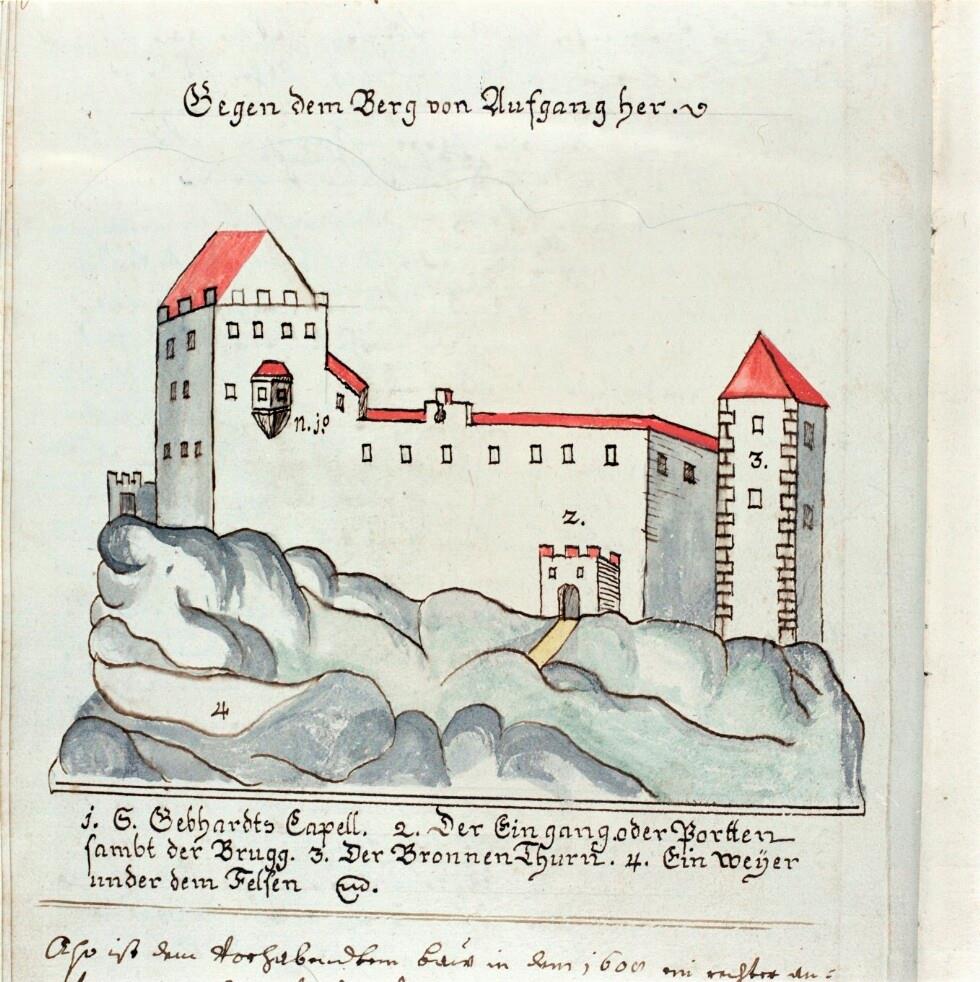 Gegen dem Berg von Aufgang her.
n. jo
2.
3.
4
j. S. Gebhardts Capell. 2. Der Eingang oder Portten
sambt der Brugg. 3. Der Bronnen Thurn. 4. Ein Weÿer
under dem Felsen
Also ist dem baw in dem 1600 ein rechter an=